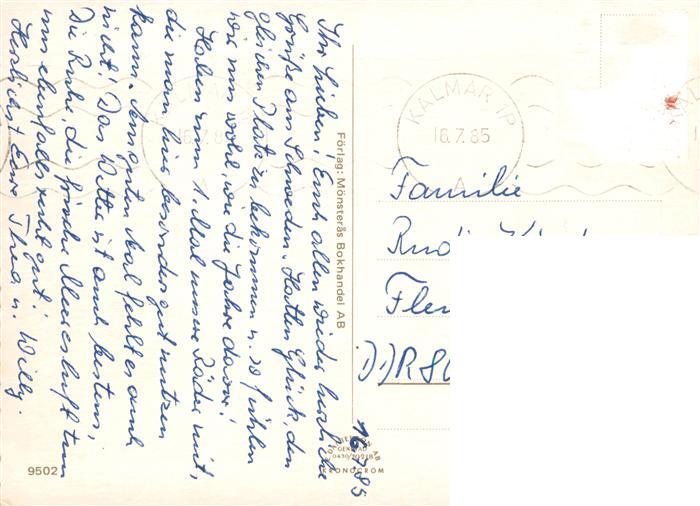 Ihr Lieben! Euch allen wieder herzliche
Grüße aus Schweden. Hatten Glück, den
gleichen Platz zu bekommen u. so fühlen
wir uns wohl, wie die Jahre davor!
Haben zum 1. Mal unsere Räder mit,
die man hier besonders gut nutzen
kann. An guten Mal fehlt es auch
nicht! Das Wetter ist auch bestens,
Die Ruhe, die frische Meeresluft tun
uns ebenfalls recht gut!
Herzlichst Eure Thea u. Willy.
16.7.85
Förlag: Mönsterås Bokhandel AB
9502
KRONOCROM
KALMAR 1P
16.7.85
A
KALMAR
16.7.8
Familie
Rudi
Fle
DDR 80